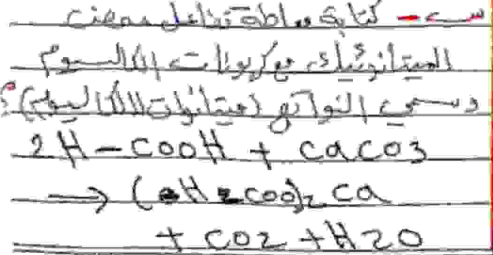 س - كتابة معادلة تفاعل حمض
الميثانوئيك مع كربونات الكالسيوم
وسمي النواتج (ميثانوات الكالسيوم)؟
2H-COOH + CaCO3
→ (H COO)2 Ca
+ CO2 + H2O